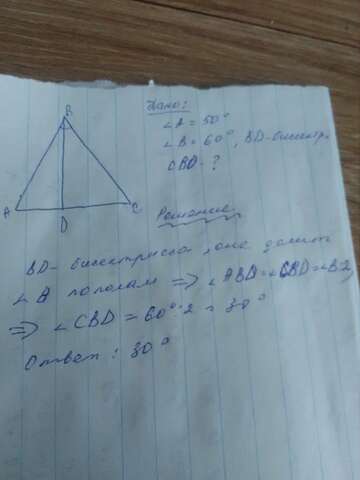 B
A
C
D
Дано:
∠A = 50°
∠B = 60°, BD - биссектр.
CBD - ?
Решение
BD - биссектрисса, она делит
∠B пополам => ∠ABD = ∠CBD = ∠B:2
=> ∠CBD = 60°:2 = 30°
Ответ: 30°